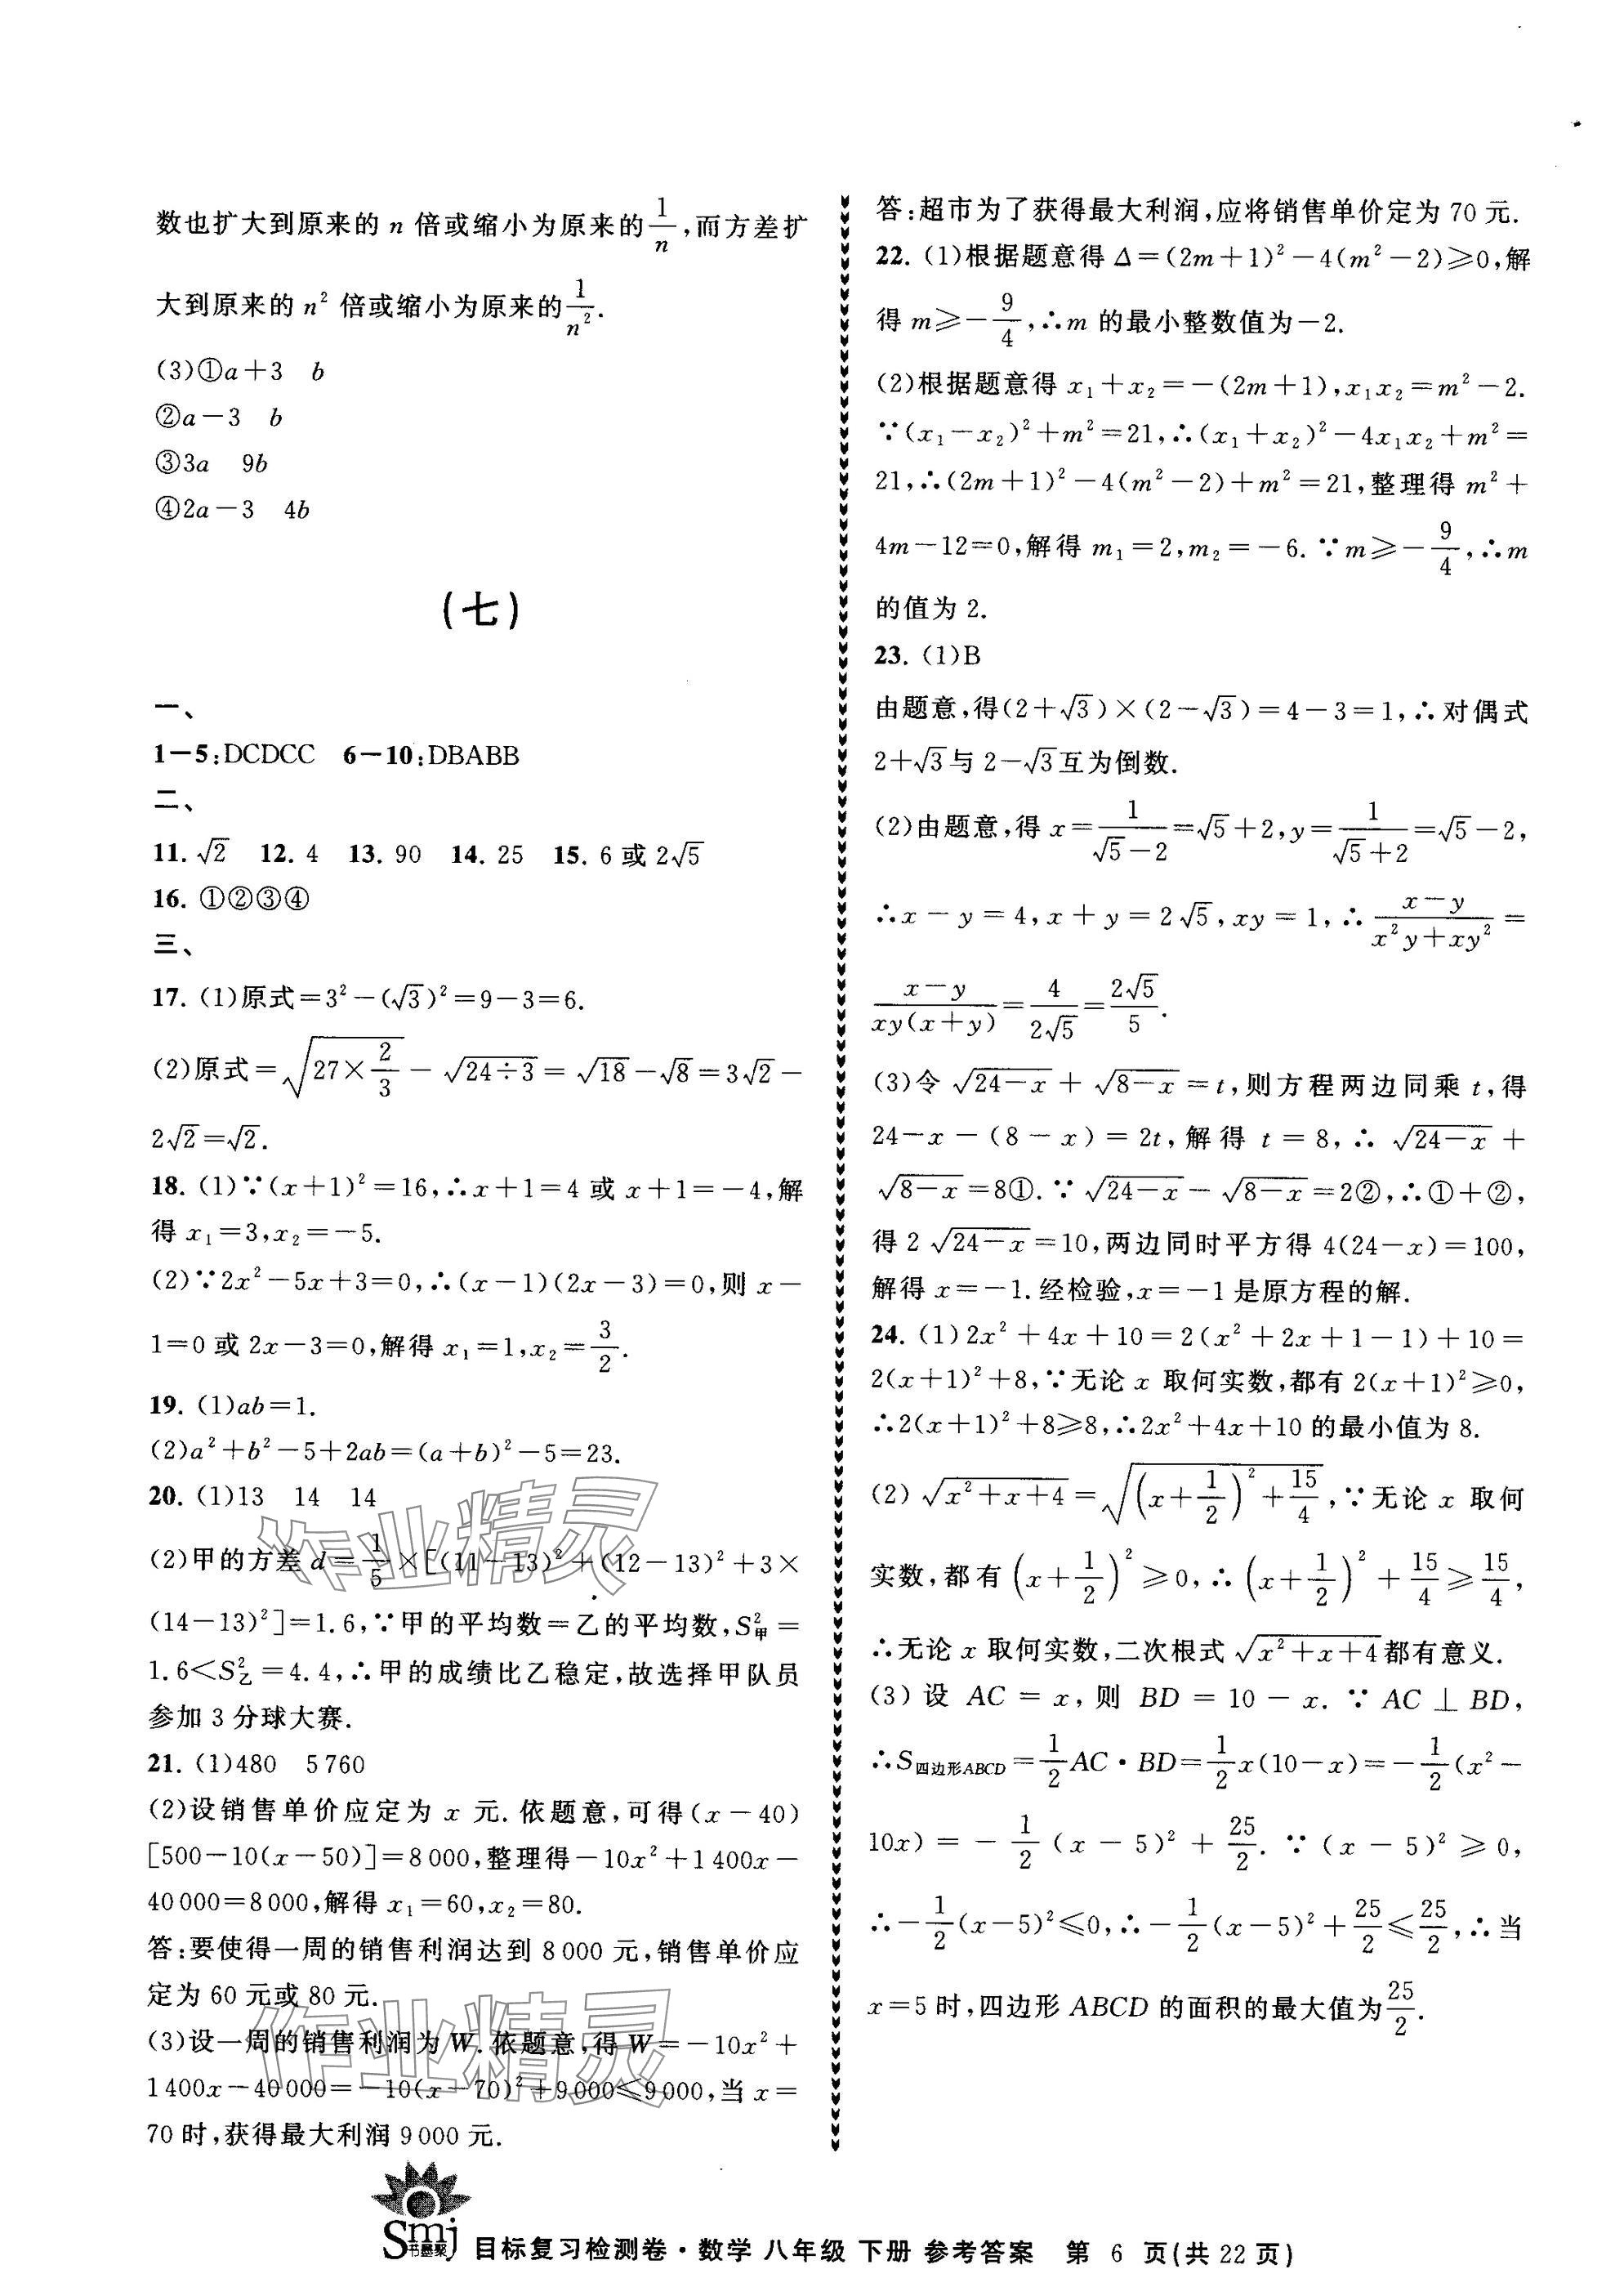 数也扩大到原来的 n 倍或缩小为原来的1/n,而方差扩
大到原来的 n² 倍或缩小为原来的1/n².
(3)①a+3　b
②a-3　b
③3a　9b
④2a-3　4b
(七)
一、
1-5:DCDCC　6-10:DBABB
二、
11. √2　12. 4　13. 90　14. 25　15. 6 或 2√5
16. ①②③④
三、
17. (1)原式=3²-(√3)²=9-3=6.
(2)原式=√(27×2/3)-√(24÷3)=√18-√8=3√2-
2√2=√2.
18. (1)∵(x+1)²=16,∴x+1=4 或 x+1=-4,解
得 x₁=3,x₂=-5.
(2)∵2x²-5x+3=0,∴(x-1)(2x-3)=0,则 x-
1=0 或 2x-3=0,解得 x₁=1,x₂=3/2.
19. (1)ab=1.
(2)a²+b²-5+2ab=(a+b)²-5=23.
20. (1)13　14　14
(2)甲的方差 d=1/5×[(11-13)²+(12-13)²+3×
(14-13)²]=1.6,∵甲的平均数=乙的平均数,S²甲=
1.6<S²乙=4.4,∴甲的成绩比乙稳定,故选择甲队员
参加 3 分球大赛.
21. (1)480　5 760
(2)设销售单价应定为 x 元.依题意,可得(x-40)
[500-10(x-50)]=8 000,整理得-10x²+1 400x-
40 000=8 000,解得 x₁=60,x₂=80.
答:要使得一周的销售利润达到 8 000 元,销售单价应
定为 60 元或 80 元.
(3)设一周的销售利润为 W.依题意,得 W=-10x²+
1 400x-40 000=-10(x-70)²+9 000≤9 000,当 x=
70 时,获得最大利润 9 000 元.
答:超市为了获得最大利润,应将销售单价定为 70 元.
22. (1)根据题意得 Δ=(2m+1)²-4(m²-2)≥0,解
得 m≥-9/4,∴m 的最小整数值为-2.
(2)根据题意得 x₁+x₂=-(2m+1),x₁x₂=m²-2.
∵(x₁-x₂)²+m²=21,∴(x₁+x₂)²-4x₁x₂+m²=
21,∴(2m+1)²-4(m²-2)+m²=21,整理得 m²+
4m-12=0,解得 m₁=2,m₂=-6.∵m≥-9/4,∴m
的值为 2.
23. (1)B
由题意,得(2+√3)×(2-√3)=4-3=1,∴对偶式
2+√3与 2-√3互为倒数.
(2)由题意,得 x=1/(√5-2)=√5+2,y=1/(√5+2)=√5-2,
∴x-y=4,x+y=2√5,xy=1,∴(x-y)/(x²y+xy²)=
(x-y)/(xy(x+y))=4/(2√5)=2√5/5.
(3)令 √(24-x)+√(8-x)=t,则方程两边同乘 t,得
24-x-(8-x)=2t,解得 t=8,∴√(24-x)+
√(8-x)=8①.∵√(24-x)-√(8-x)=2②,∴①+②,
得 2√(24-x)=10,两边同时平方得 4(24-x)=100,
解得 x=-1.经检验,x=-1 是原方程的解.
24. (1)2x²+4x+10=2(x²+2x+1-1)+10=
2(x+1)²+8,∵无论 x 取何实数,都有 2(x+1)²≥0,
∴2(x+1)²+8≥8,∴2x²+4x+10 的最小值为 8.
(2)√(x²+x+4)=√((x+1/2)²+15/4),∵无论 x 取何
实数,都有(x+1/2)²≥0,∴(x+1/2)²+15/4≥15/4,
∴无论 x 取何实数,二次根式√(x²+x+4)都有意义.
(3)设 AC=x,则 BD=10-x.∵AC⊥BD,
∴S四边形ABCD=1/2AC·BD=1/2x(10-x)=-1/2(x²-
10x)=-1/2(x-5)²+25/2.∵(x-5)²≥0,
∴-1/2(x-5)²≤0,∴-1/2(x-5)²+25/2≤25/2,∴当
x=5 时,四边形 ABCD 的面积的最大值为25/2.
作业精灵
作业精灵
Smj
书墨聚
目标复习检测卷·数学 八年级 下册 参考答案　第 6 页(共 22 页)